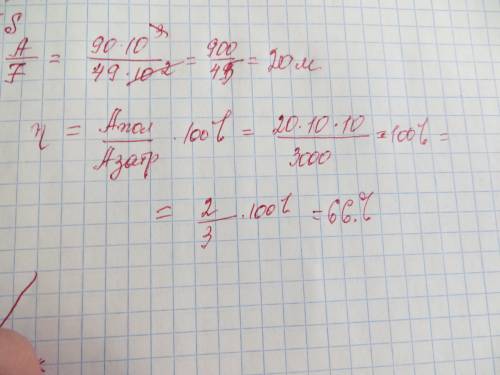 S
A/F = 90·10³/49·10² = 900/45 = 20м
η = Апол/Азатр · 100% = 20·10·10/3000 · 100% =
= 2/3 · 100% = 66.%